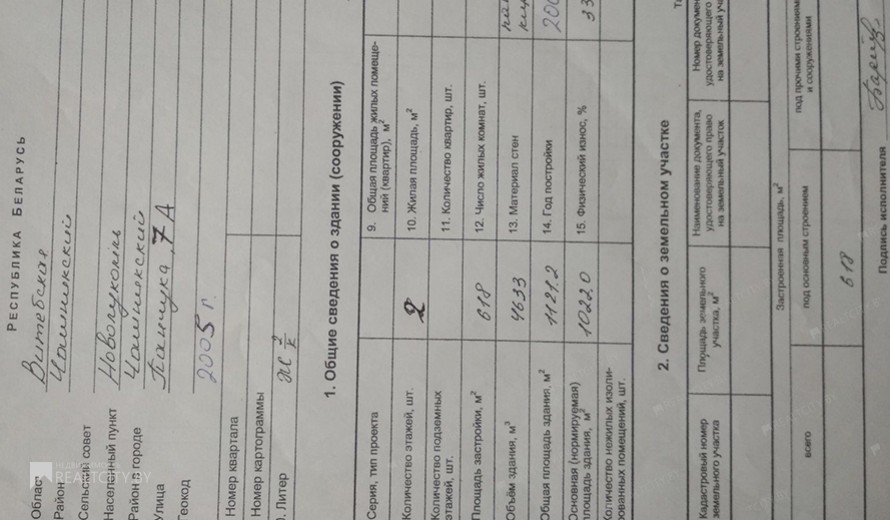 РЕСПУБЛИКА БЕЛАРУСЬ
Област Витебская
Район Чашникский
Сельский совет
Населенный пункт Новолукомль
Район в городе Чашникский
Улица Панчука 7А
Геокод
2005 г.
Номер квартала
Номер картограммы
). Литер
1. Общие сведения о здании (сооружении)
Серия, тип проекта
9. Общая площадь жилых помеще-
ний (квартир), м²
Количество этажей, шт. 2
10. Жилая площадь, м²
Количество подземных
этажей, шт.
11. Количество квартир, шт.
Площадь застройки, м² 618
12. Число жилых комнат, шт.
Объём здания, м³ 4633
13. Материал стен
Общая площадь здания, м² 1121.2
14. Год постройки 200
Основная (нормируемая)
площадь здания, м² 1022.0
15. Физический износ, % 33
Количество нежилых изоли-
рованных помещений, шт.
2. Сведения о земельном участке
Кадастровый номер
земельного участка
Площадь земельного
участка, м²
Наименование документа,
удостоверяющего право
на земельный участок
Номер докумен
удостоверяющего
на земельный уча
Застроенная площадь, м²
всего
под основным строением
под прочими строениям
и сооружениями
618
Подпись исполнителя
REALTCITY.BY